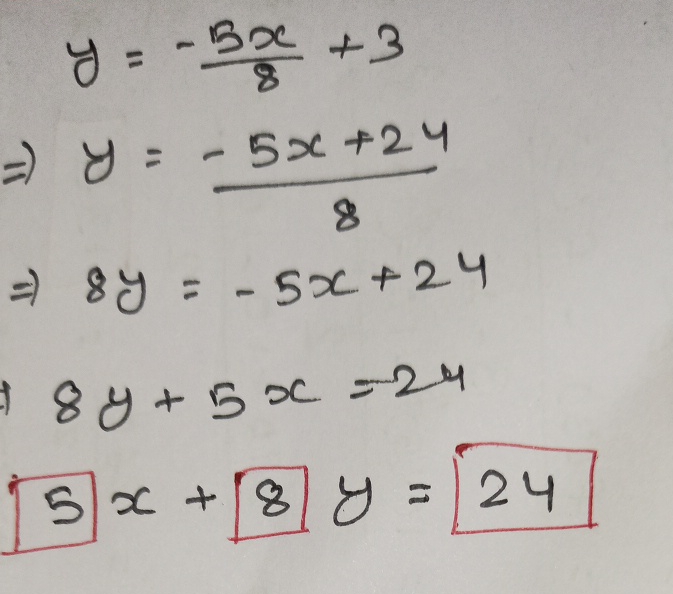 y = -5x/8 + 3
⇒ y = -5x + 24 / 8
⇒ 8y = -5x + 24
⇒ 8y + 5x = 24
5 x + 8 y = 24